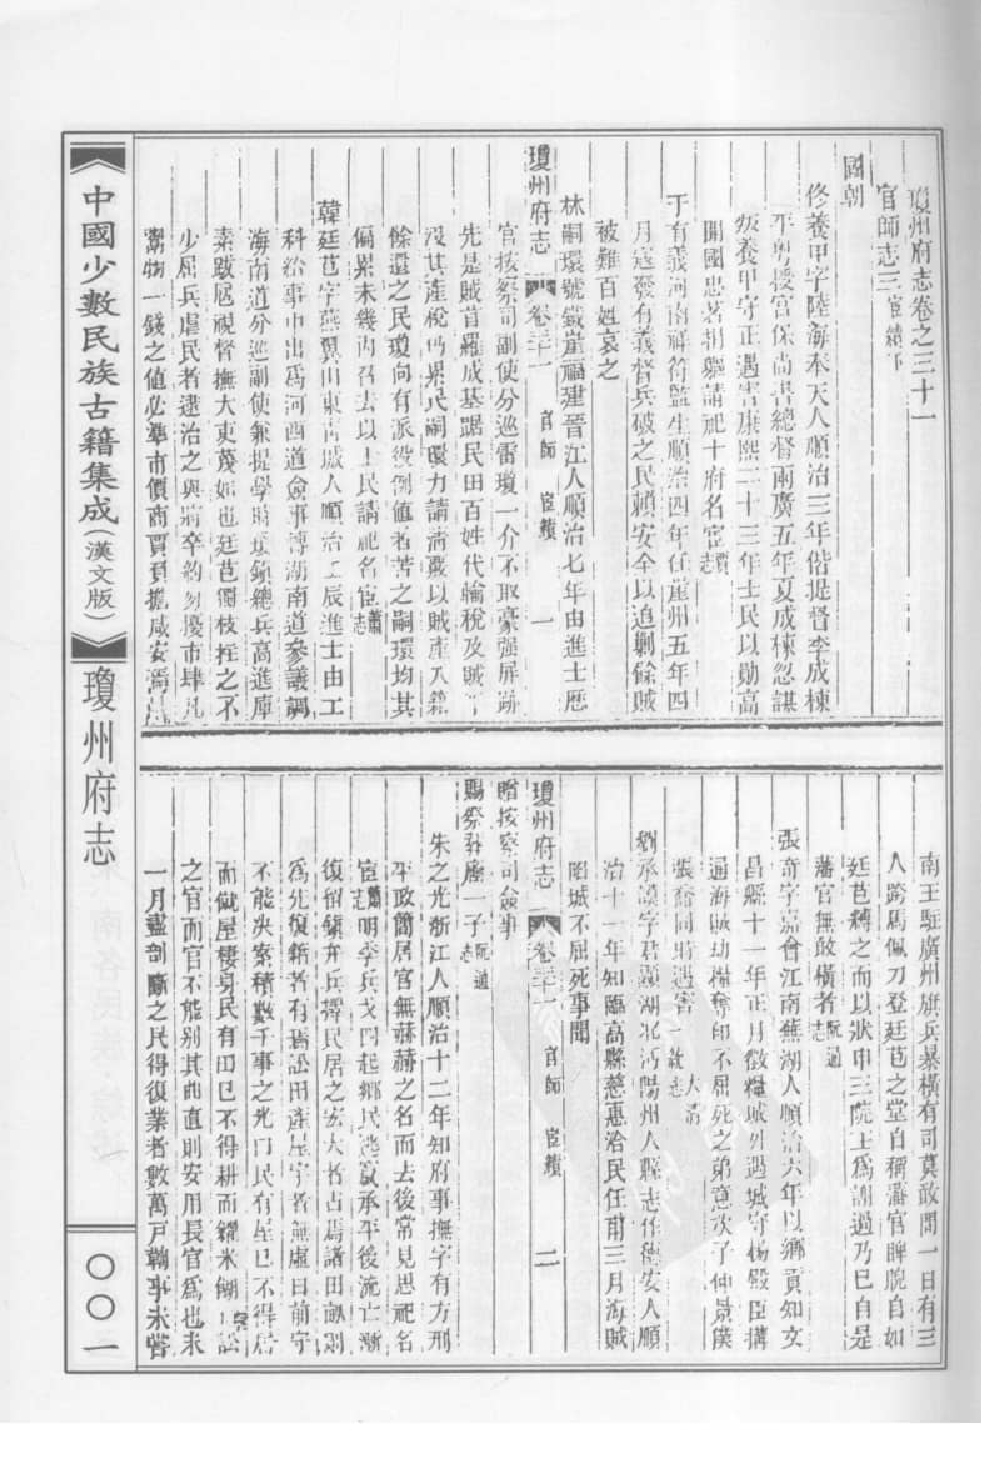 瓊州府志卷之三十一
官師志三宦績下
國朝
佟養甲字陸海奉天人順治三年偕提督李成棟
平粵授官保尚書總督兩廣五年夏成棟忽謀
叛養甲守正遇害康熙二十三年士民以勳高
開國忠著捐軀請祀十府名宦
于有義河南祥符監生順治四年任崖州五年四
月寇發有義督兵破之民賴安全以追剿餘賊
被難百姓哀之
林嗣環號鐵崖福建晉江人順治七年由進士歷
瓊州府志 卷三十一 官師 宦績 一
官按察司副使分巡雷瓊一介不取豪强屏跡
先是賊首羅成基踞民田百姓代輸稅及賊平
沒其產稅仍累民嗣環力請清覈以賊產入籍
餘還之民瓊向有派役倒値者苦之嗣環均其
偏累未幾內召去以上民請祀名宦蕭志
韓廷芑字燕翼山東青城人順治壬辰進士由工
科給事中出爲河西道僉事轉湖南道參議調
海南道分巡副使兼提學時援鎮總兵高進庫
素跋扈視督撫大吏蔑如也廷芑獨枝拄之不
少屈兵虐民者逮治之與將卒約勿擾市肆凡
鬻物一錢之值必準市價商賈負擔咸安
南王駐廣州旗兵暴橫有司莫敢問一日有三
人跨馬佩刀登廷芑之堂自稱藩官睥睨自如
廷芑縛之而以狀申三院王爲謝過乃已自是
藩官無敢橫者阮通志
張奇字嘉會江南蕪湖人順治六年以鄉貢知文
昌縣十一年正月徵糧城外遇城守楊殿臣搆
通海賊劫擄奪印不屈死之弟意次子仲景僕
張奮同時遇害大清一統志
劉承謨字君顯湖北沔陽州人縣志作德安人順
治十一年知臨高縣慈惠洽民任甫三月海賊
陷城不屈死事聞
瓊州府志 卷三十一 官師 宦績 二
贈按察司僉事
賜祭葬廕一子阮通志
朱之光浙江人順治十二年知府事撫字有方刑
平政簡居官無赫赫之名而去後常見思祀名
宦蕭志明季兵戈四起鄉民逃竄承平後流亡漸
復留鎮弁兵擇民居之宏大者占焉諸田畝則
爲先復籍者有焉訟田產屋宇者無虛日前守
不能決案積數千事之光曰民有屋已不得居
而僦屋棲身民有田已不得耕而糴米餬口訟
之官而官不能別其曲直則安用長官爲也未
一月盡剖斷之民得復業者數萬戶鞫事未嘗
《中國少數民族古籍集成（漢文版）》 瓊州府志
〇〇一